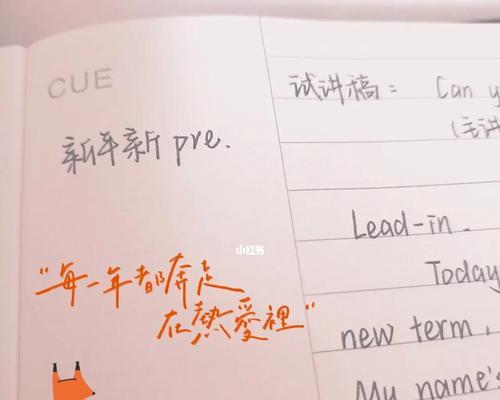 CUE
新年新 pre.
小红书
“每一年都奔走
在熱愛裡”
试讲稿: Can y
(主讲
Lead-in.
Today
new term,
My name's